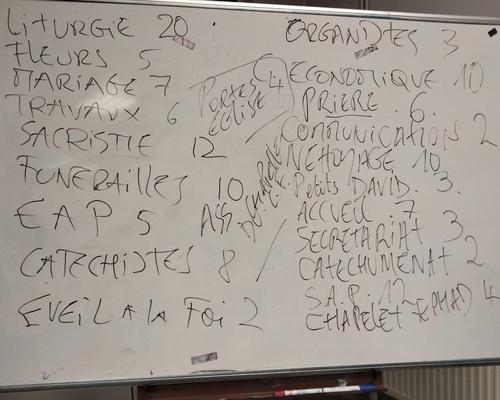 LITURGIE 20
FLEURS 5
MARIAGE 7
TRAVAUX 6
SACRISTIE 12
FUNERAILLES 10
EAP 5
CATECHISTES 8
EVEIL A LA FOI 2
PORTES 4
EGLISE
ASS.
ORGANISTES 3
ECONOMIQUE 10
PRIERE 6
COMMUNICATION 2
NETTOYAGE 10
Petits DAVID. 3.
ACCUEIL 7
SECRETARIAT 3
CATECHUMENAT 2
S.A.P. 12
CHAPELET EPHAD 4